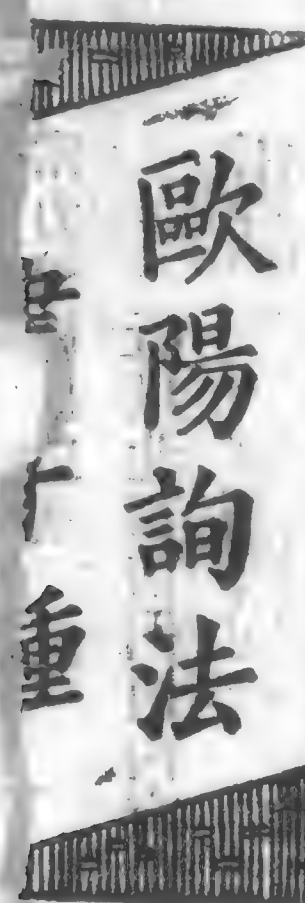 歐陽詢法
重